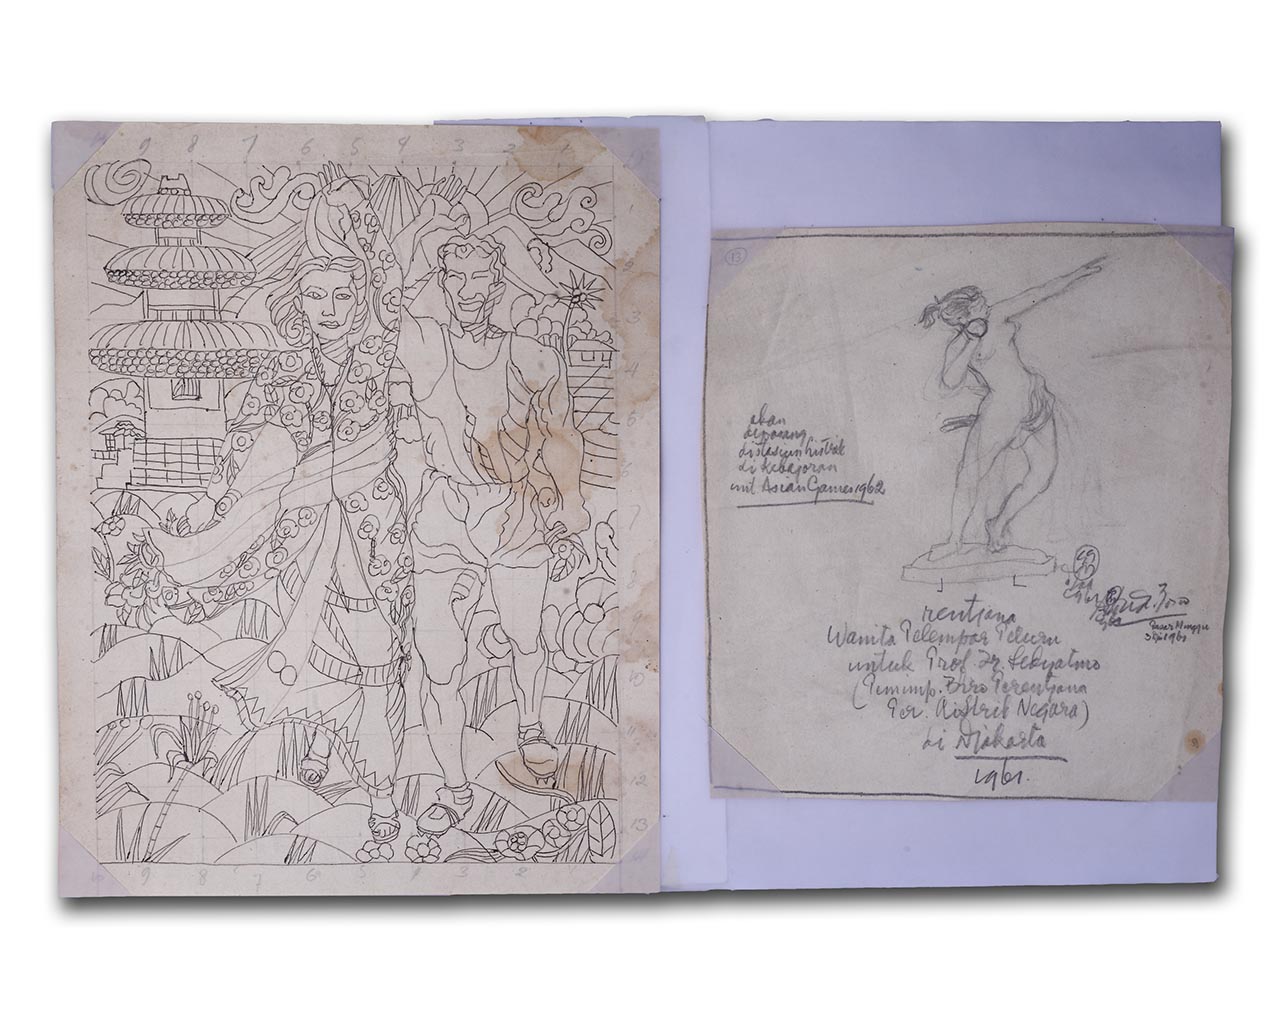 9 8 7 6 5 4 3 2 1
1
2
3
4
5
6
7
8
9
10
11
12
13
9 8 7 6 5 4 3 2 1
13
akan
dipasang
distasiun listrik
di Kebajoran
unt Asian Games 1962
rentjana
Wanita Pelempar Peluru
untuk Prof. Ir. Sedyatmo
(Pimimp. Biro Perentjana
Per. Listrik Negara)
di Djakarta
1961.
Pasar Minggu
1961